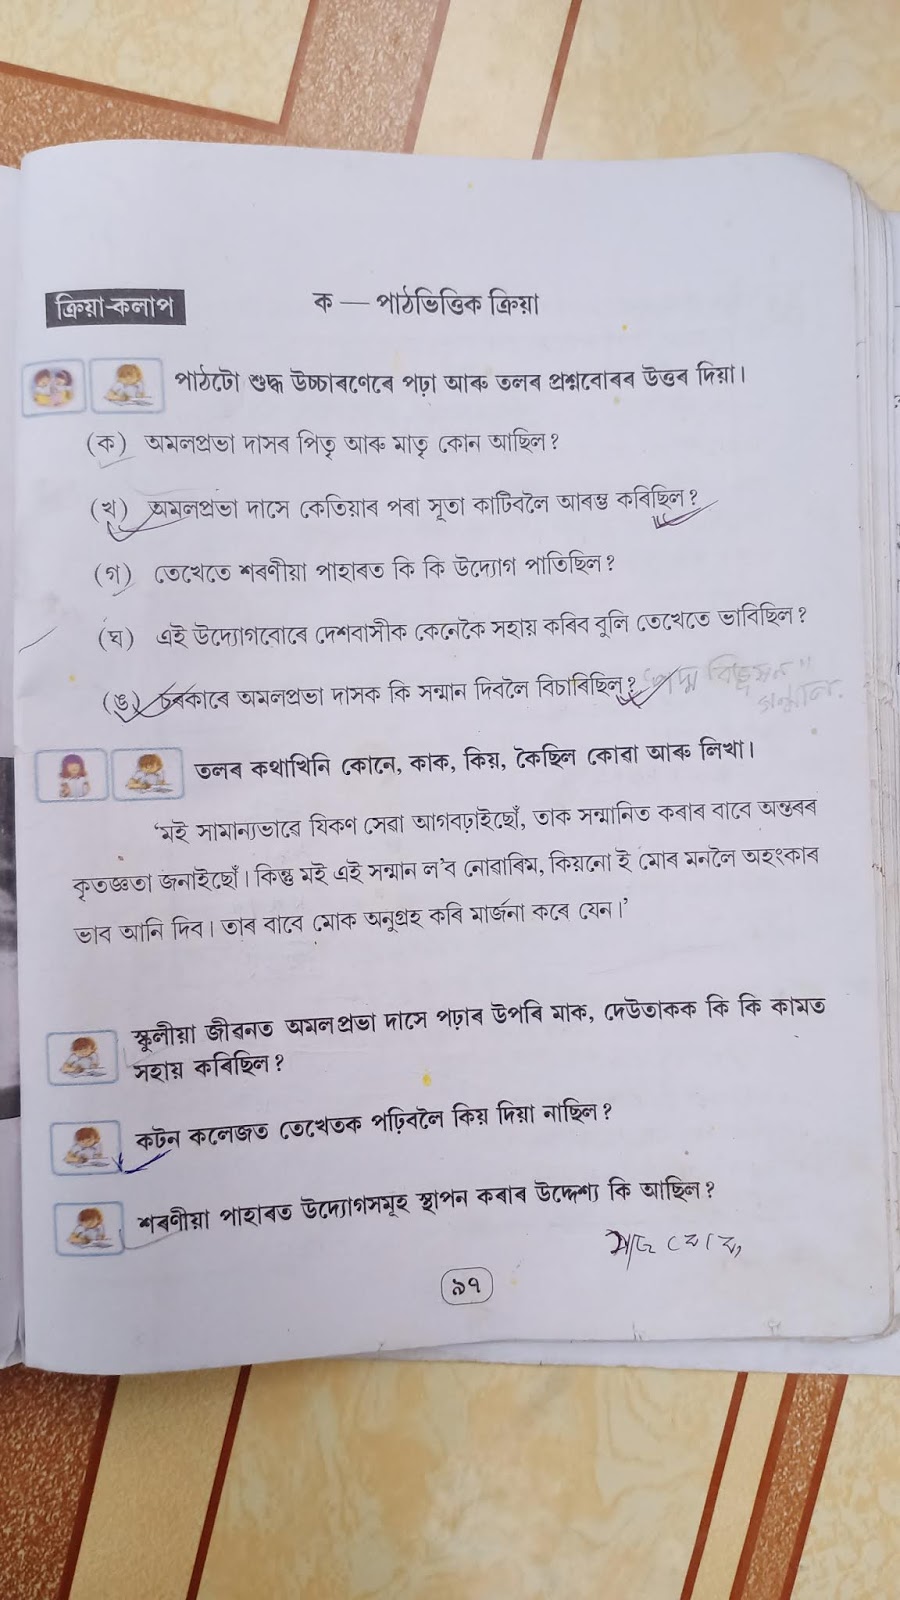 ক্ৰিয়া-কলাপ
ক — পাঠভিত্তিক ক্ৰিয়া
পাঠটো শুদ্ধ উচ্চাৰণেৰে পঢ়া আৰু তলৰ প্ৰশ্নবোৰৰ উত্তৰ দিয়া।
(ক) অমলপ্ৰভা দাসৰ পিতৃ আৰু মাতৃ কোন আছিল?
(খ) অমলপ্ৰভা দাসে কেতিয়াৰ পৰা সূতা কাটিবলৈ আৰম্ভ কৰিছিল?
(গ) তেখেতে শৰণীয়া পাহাৰত কি কি উদ্যোগ পাতিছিল?
(ঘ) এই উদ্যোগবোৰে দেশবাসীক কেনেকৈ সহায় কৰিব বুলি তেখেতে ভাবিছিল?
(ঙ) চৰকাৰে অমলপ্ৰভা দাসক কি সন্মান দিবলৈ বিচাৰিছিল? "পদ্ম বিভূষন"
সন্মান.
তলৰ কথাখিনি কোনে, কাক, কিয়, কৈছিল কোৱা আৰু লিখা।
'মই সামান্যভাৱে যিকণ সেৱা আগবঢ়াইছোঁ, তাক সন্মানিত কৰাৰ বাবে অন্তৰৰ
কৃতজ্ঞতা জনাইছোঁ। কিন্তু মই এই সন্মান ল'ব নোৱাৰিম, কিয়নো ই মোৰ মনলৈ অহংকাৰ
ভাব আনি দিব। তাৰ বাবে মোক অনুগ্ৰহ কৰি মাৰ্জনা কৰে যেন।'
স্কুলীয়া জীৱনত অমলপ্ৰভা দাসে পঢ়াৰ উপৰি মাক, দেউতাকক কি কি কামত
সহায় কৰিছিল?
কটন কলেজত তেখেতক পঢ়িবলৈ কিয় দিয়া নাছিল?
শৰণীয়া পাহাৰত উদ্যোগসমূহ স্থাপন কৰাৰ উদ্দেশ্য কি আছিল?
৯৭